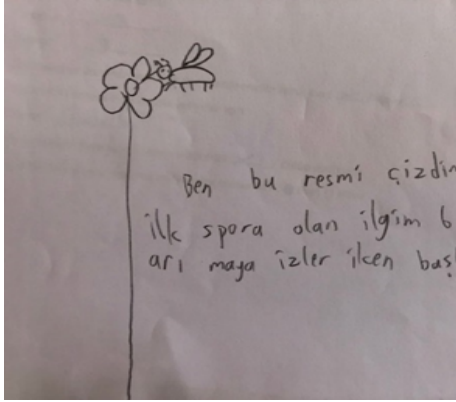 Ben bu resmi
ilk spora olan ilgim
arı maya izler iken